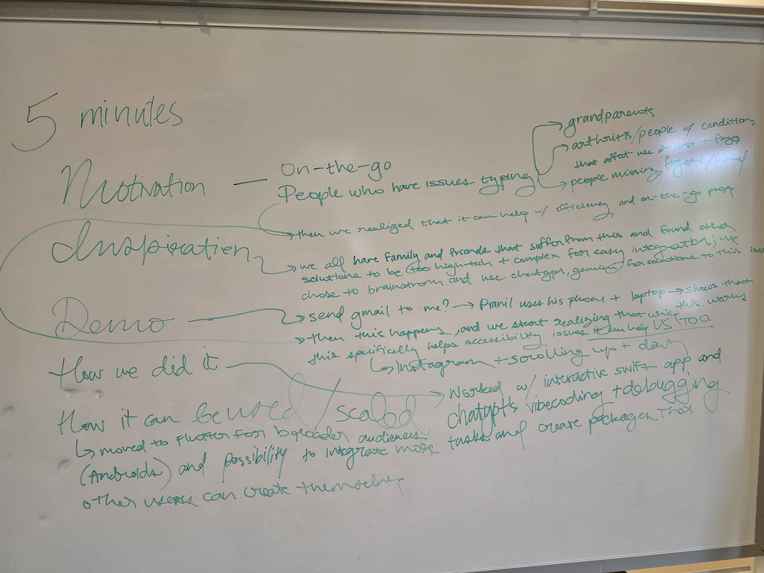 5 minutes
Motivation — On-the-go
People who have issues typing
grandparents
arthritis/people w/ conditions
that affect use
people missing
then we realized that it can help w/ efficiency and on-the-go
Inspiration
we all have family and friends that suffer from this and found other
solutions to be too high tech + complex for easy integration, we
chose to brainstorm and use chatgpt, gemini for solutions to this
Demo
send gmail to me? → Pranil uses his phone + laptop → shows them
then this happens, and we start realizing that while this works
this specifically helps accessibility issues it can help US TOO
Instagram + scrolling up + down
How we did it
Worked w/ interactive swift app and
chatgpts vibecoding + debugging
How it can be used / scaled
moved to Flutter for broader audiences
(Androids) and possibility to integrate more tasks and create packages that
other users can create themselves